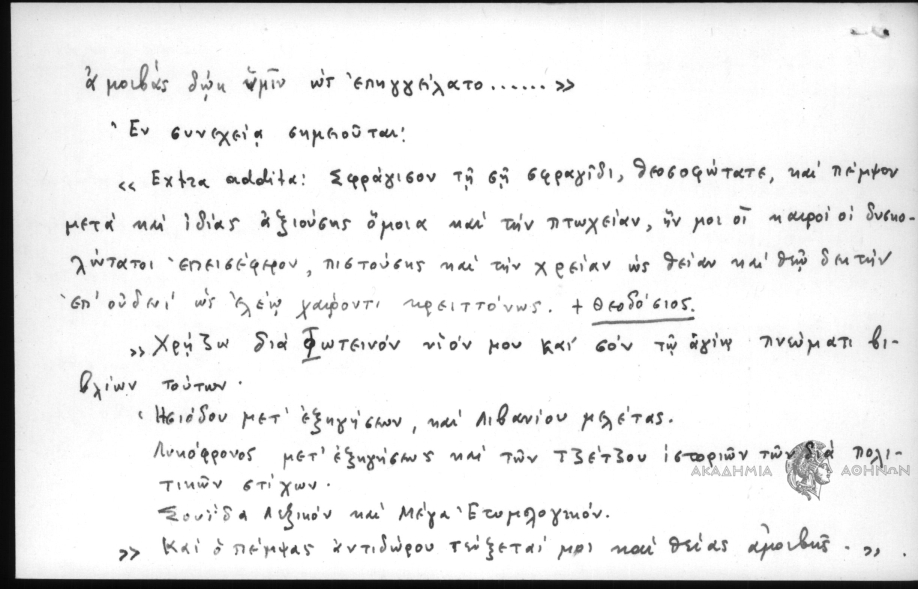 ἀμοιβάς δῴη ὑμῖν ὡς ἐπηγγείλατο......»
Ἐν συνεχείᾳ σημειοῦται:
« Extra addita: Σφράγισον τῇ σῇ σφραγῖδι, θεοσοφώτατε, καί πέμψον
μετά καί ἰδίας ἀξιούσης ὅμοια καί τήν πτωχείαν, ἥν μοι οἱ καιροί οἱ δυσκο-
λώτατοι ἐπεισέφερον, πιστούσης καί τήν χρείαν ὡς θείαν καί θεῷ δεκτήν
ἐπ' οὐδενί ὡς ἐλέῳ χαίροντι κρειττόνως. + Θεοδόσιος.
» Χρῄζω διά Φωτεινόν υἱόν μου καί σόν τῷ ἁγίῳ πνεύματι βι-
βλίων τούτων.
Ἡσιόδου μετ' ἐξηγήσεων, καί Λιβανίου μελέτας.
Λυκόφρονος μετ' ἐξηγήσεως καί τῶν Τζέτζου ἱστοριῶν τῶν διά πολι-
τικῶν στίχων.
Σουΐδα Λεξικόν καί Μέγα Ἐτυμολογικόν.
» Καί ὁ πέμψας ἀντιδώρου τεύξεταί μοι καί θείας ἀμοιβῆς. » .
ΑΚΑΔΗΜΙΑ ΑΘΗΝΩΝ